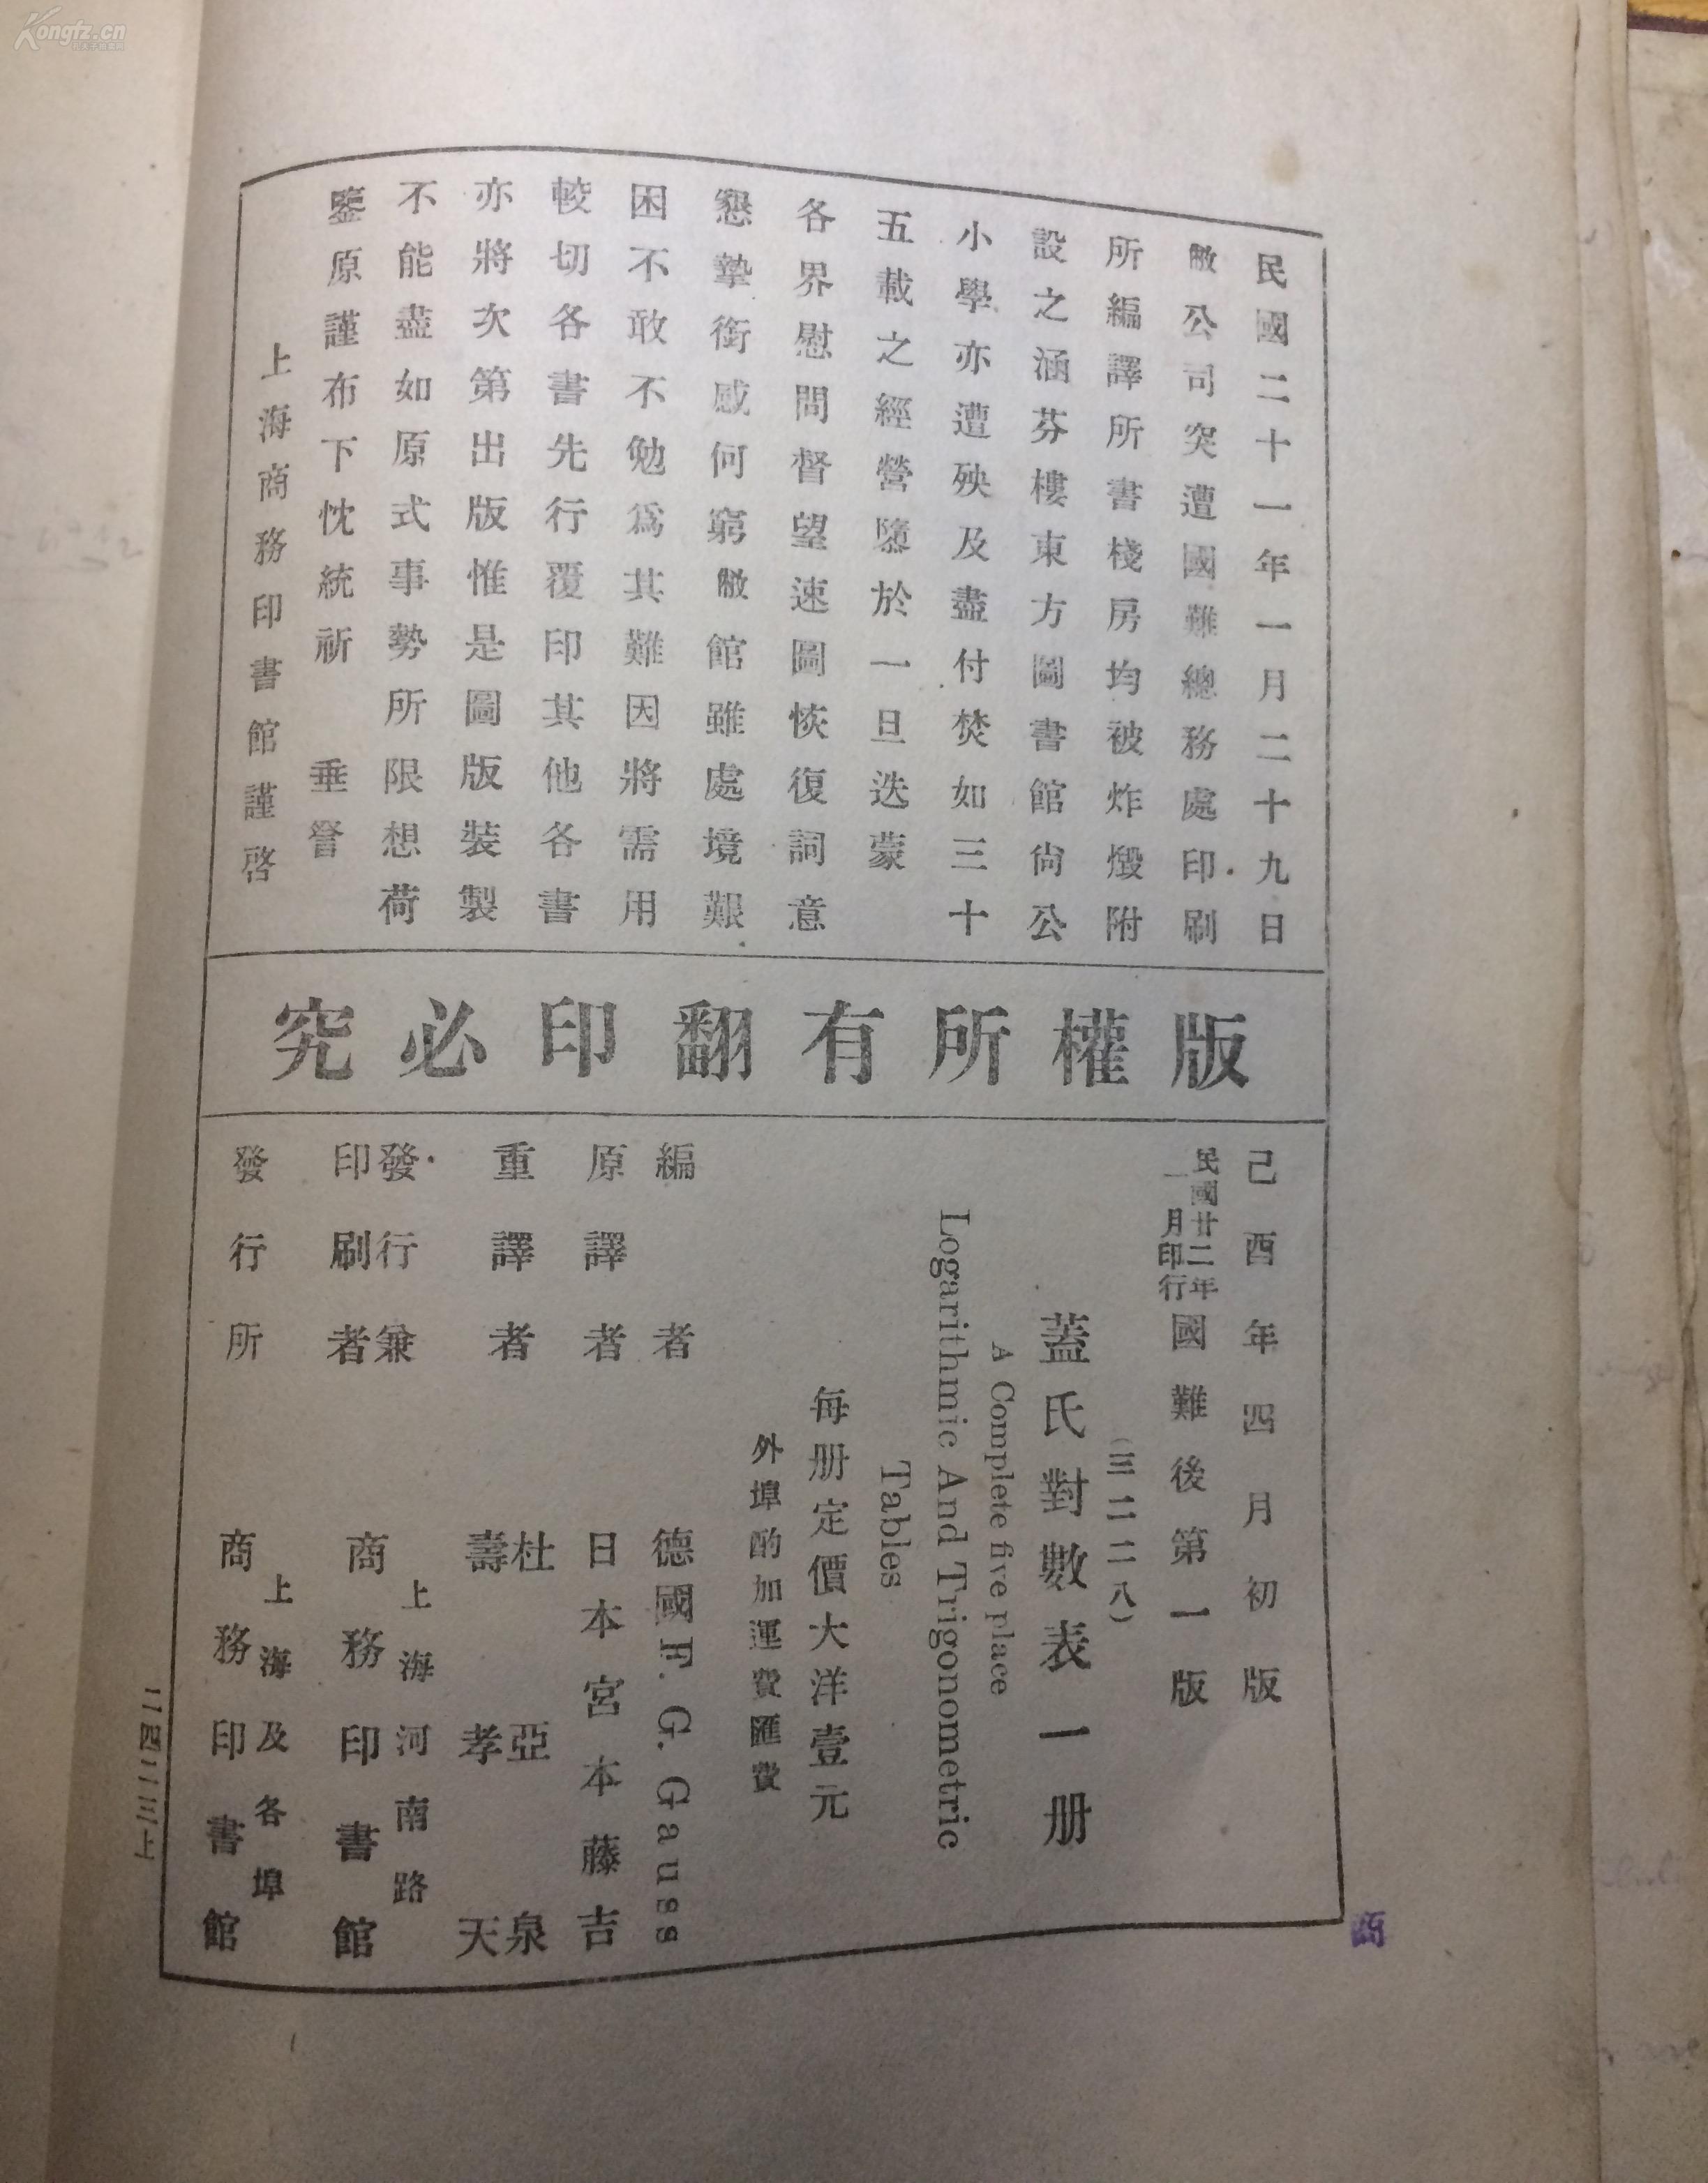 Kongfz.cn
民國二十一年一月二十九日
敝公司突遭國難總務處印刷
所編譯所書棧房均被炸燬附
設之涵芬樓東方圖書館尙公
小學亦遭殃及盡付焚如三十
五載之經營隳於一旦迭蒙
各界慰問督望速圖恢復詞意
懇摯銜感何窮敝館雖處境艱
困不敢不勉爲其難因將需用
較切各書先行覆印其他各書
亦將次第出版惟是圖版裝製
不能盡如原式事勢所限想荷
鑒原謹布下忱統祈 垂詧
上海商務印書館謹啓
版權所有翻印必究
己酉年四月初版
民國廿二年
一月印行
國難後第一版
(三二二八)
蓋氏對數表一册
A Complete five place
Logarithmic And Trigonometric
Tables
每册定價大洋壹元
外埠酌加運費匯費
編者 德國 F. G. Gauss
原譯者 日本宮本藤吉
重譯者 杜亞泉
壽孝天
發行兼
印刷者
上海河南路
商務印書館
發行所
上海及各埠
商務印書館
二四二三上
商